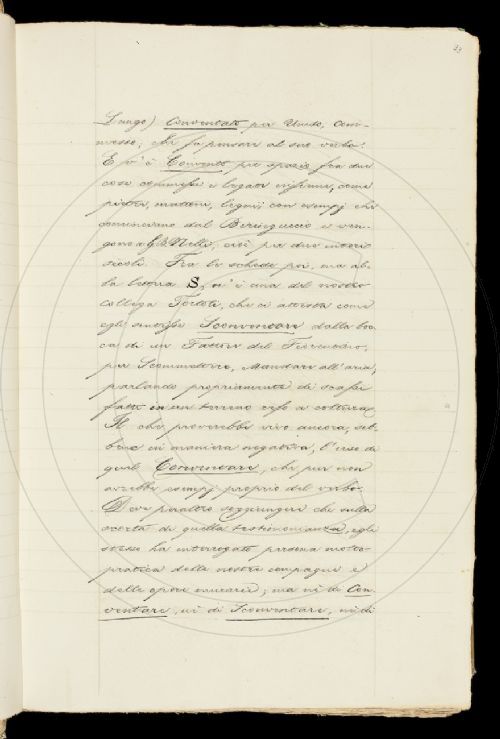 23
Luogo) Conventato per Unito, Com-
messo; che fa pensare al suo verbo.
E vi è Convento per spazio fra due
cose commesse e legate insieme, come
pietre, mattoni, legni; con esempj che
cominciano dal Beringuccio e ven-
gono a G. B. Nelli, cioè per due interi
secoli. Fra le schede poi, ma al-
la lettera S, vi è una del nostro
collega Tortoli, che ci attesta come
egli sentisse Sconventare dalla boc-
ca di un Fattore del Fiorentino,
per Scommettere, Mandare all'aria,
parlando propriamente di scasse
fatte in un terreno a coltura.
Il che proverebbe vivo ancora, seb-
bene in maniera negativa, l'uso di
quel Conventare, che pur non
avrebbe esempj proprio del verbo.
Devo peraltro soggiungere che sulla
scorta di quella testimonianza, egli
stesso ha interrogato persona molto
pratica delle nostre campagne e
delle opere murarie; ma nè di Con-
ventare, nè di Sconventare, nè di